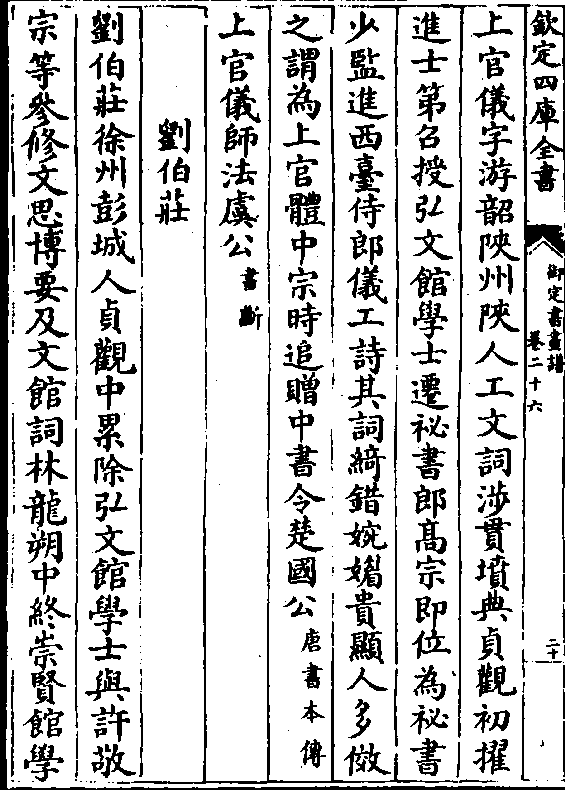 欽定四庫全書
御定書畫譜
卷二十六
二十
上官儀字游韶陜州陜人工文詞涉貫墳典貞觀初擢
進士第召授弘文館學士遷祕書郎髙宗即位為祕書
少監進西臺侍郎儀工詩其詞綺錯婉媚貴顯人多傚
之謂為上官體中宗時追贈中書令楚國公唐書本傳
上官儀師法虞公書斷
劉伯莊
劉伯莊徐州彭城人貞觀中累除弘文館學士與許敬
宗等參修文思博要及文館詞林龍朔中終崇賢館學